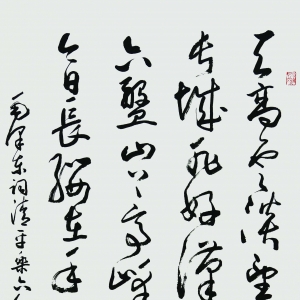 天高云淡望
长城非好漢
六盤山上高峰
今日長缨在手
毛泽东词清平樂六